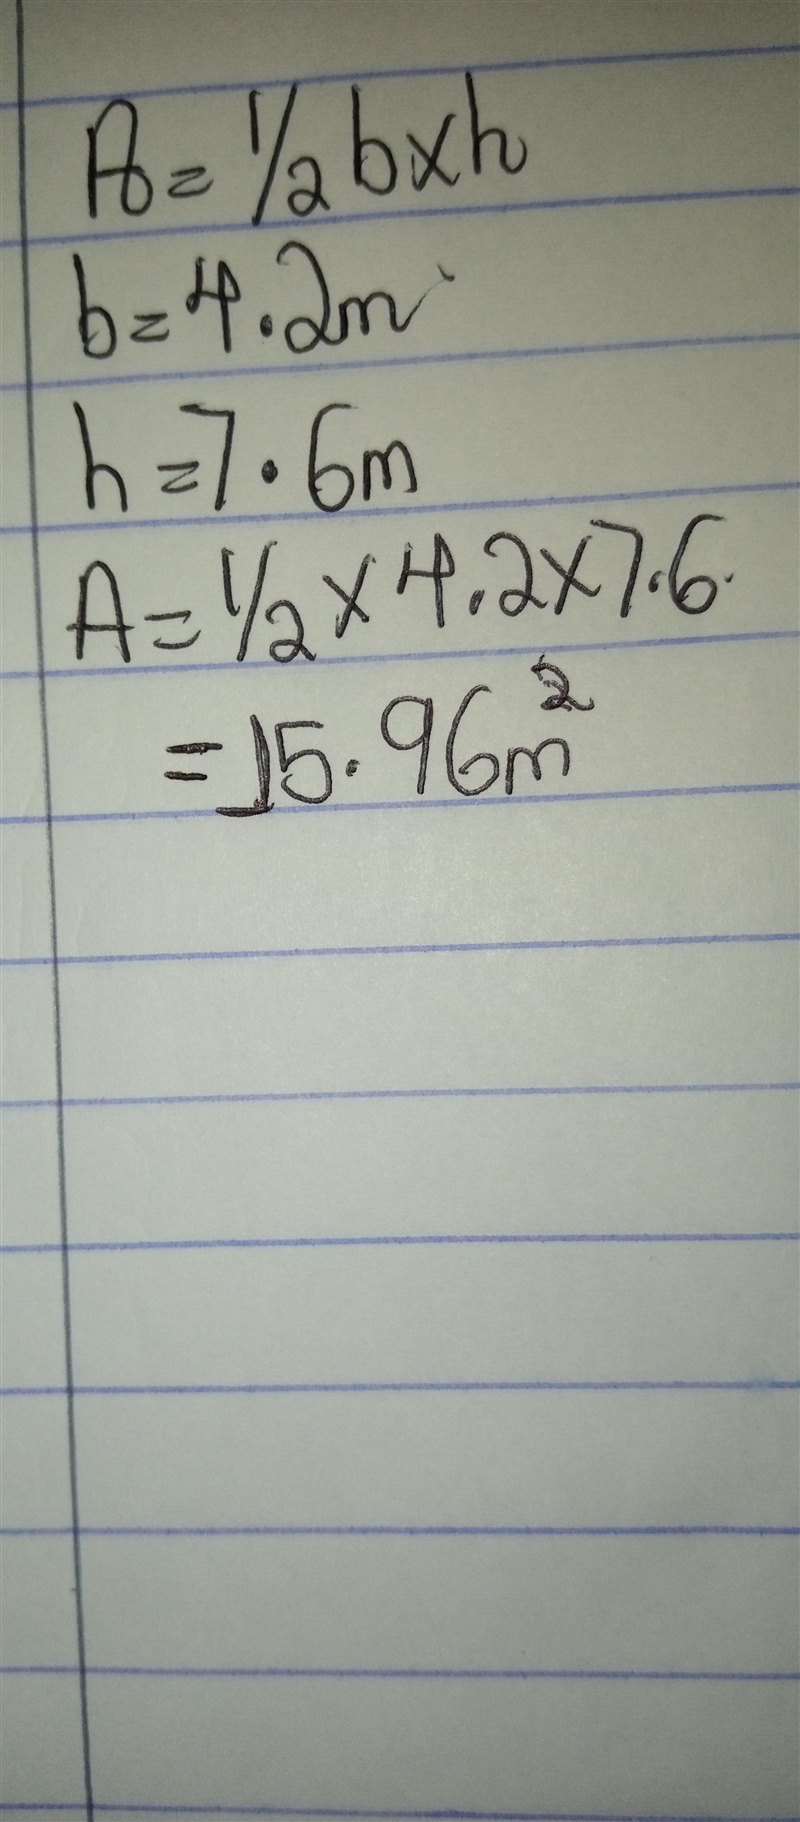 A = 1/2 b x h
b = 4.2m
h = 7.6m
A = 1/2 x 4.2 x 7.6
= 15.96m²